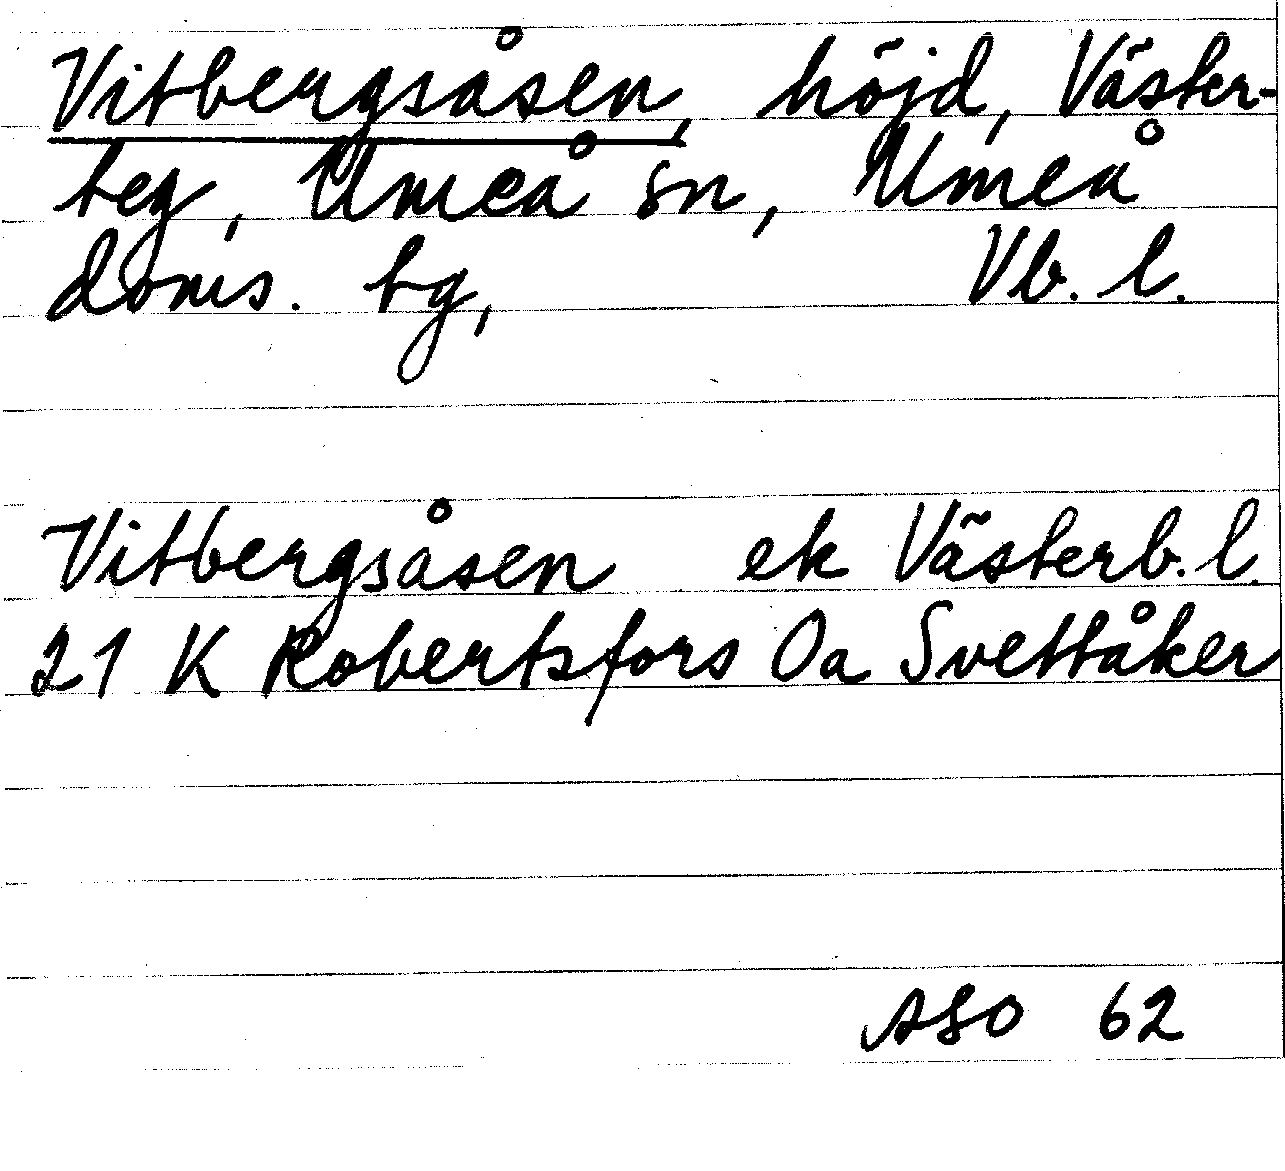 Vitbergsåsen, höjd, Väster-
teg, Umeå sn, Umeå
doms. tg, Vb. l.
Vitbergsåsen ek Västerb. l.
21 K Robertsfors Oa Svettåker
ASO 62